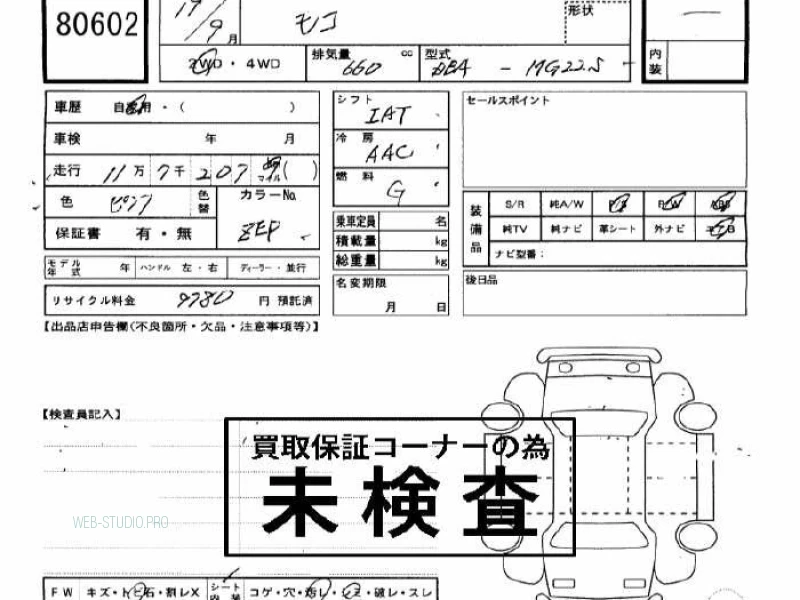 80602 19/9月 モコ 形状
2WD・4WD 排気量 660 cc 型式 DBA - MG22S 内装
車歴 自家用・( )
シフト IAT セールスポイント
車検 年 月
冷房 AAC
走行 11万7千207 マイル( )
燃料 G
色 ピンク 色替 カラーNo. ZEP
S/R 純A/W P/S P/W ABS
保証書 有・無
乗車定員 名
装備品 純TV 純ナビ 革シート 外ナビ エアB
積載量 kg
ナビ型番:
総重量 kg
モデル年式 年 ハンドル 左・右 ディーラー・並行
名変期限 月 日
後日品
リサイクル料金 9780 円 預託済
【出品店申告欄(不良箇所・欠品・注意事項等)】
【検査員記入】
買取保証コーナーの為
未検査
WEB-STUDIO.PRO
FW キズ・トビ石・割レX シート内装 コゲ・穴・汚レ・シミ・破レ・スレ